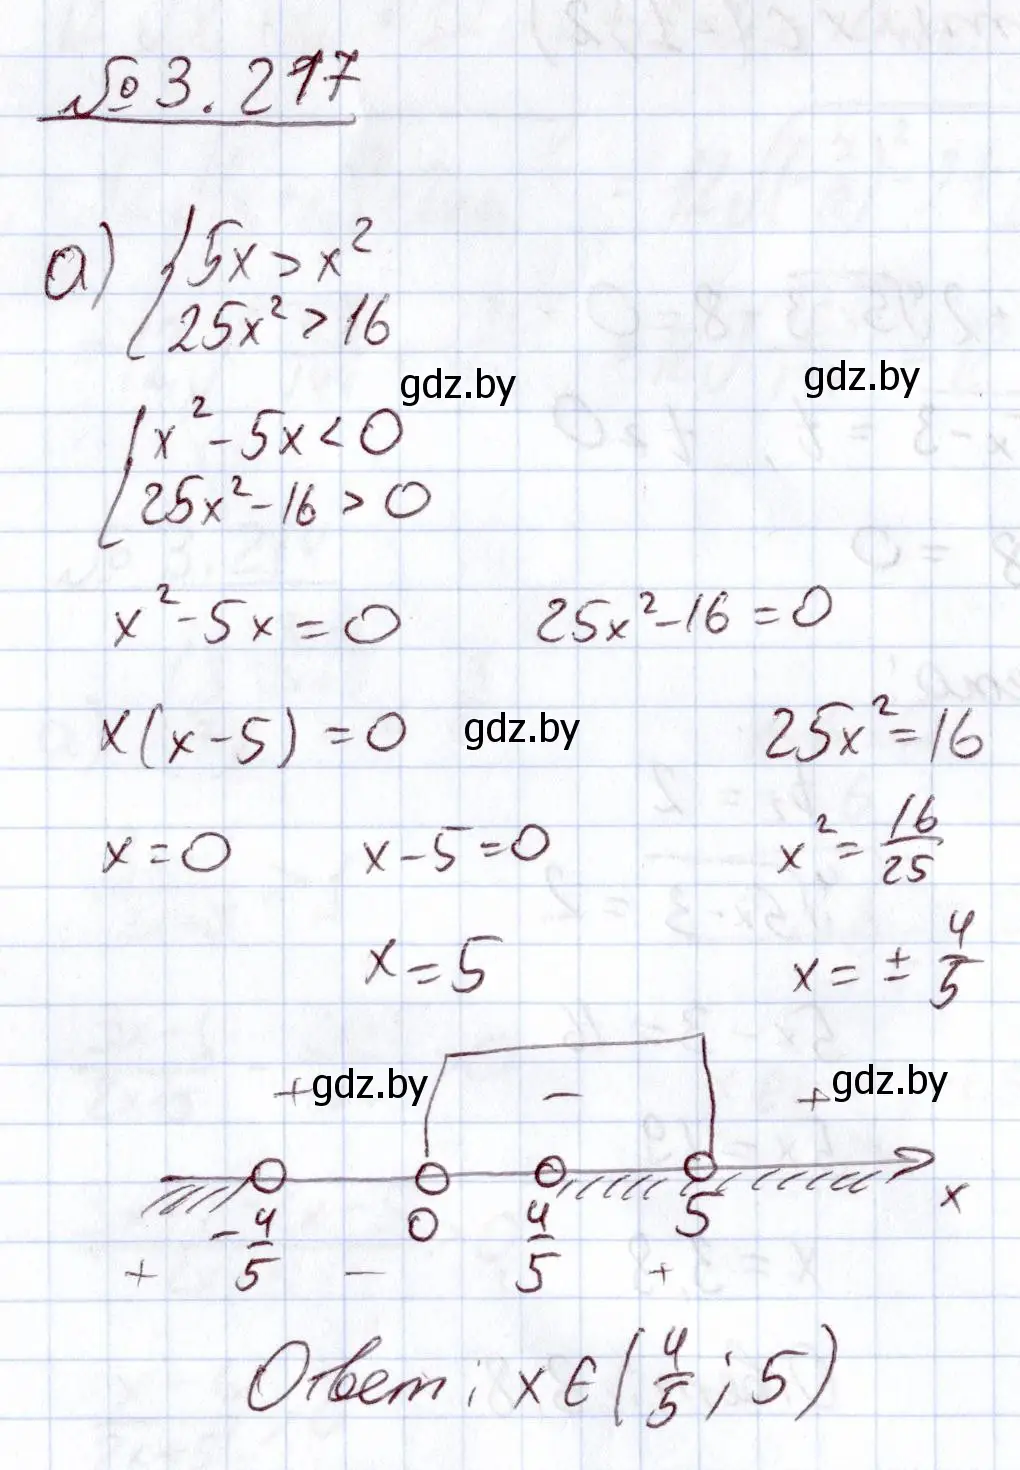 № 3.217
а) { 5x > x²
25x² > 16
gdz.by gdz.by
{ x² - 5x < 0
25x² - 16 > 0
x² - 5x = 0 25x² - 16 = 0
x(x - 5) = 0 gdz.by 25x² = 16
x = 0 x - 5 = 0 x² = 16/25
x = 5 x = ± 4/5
+ gdz.by - + gdz.by
-4/5 0 4/5 5 x
+ - +
Ответ: x ∈ (4/5; 5)